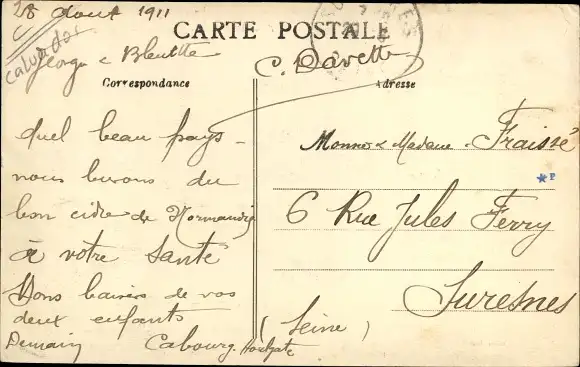 28 août 1911
CARTE POSTALE
Calvados
C. Davette
Correspondance
Adresse
Quel beau pays -
nous buvons du
bon cidre de Normandie
à votre santé
Bons baisers de vos
deux enfants
Demain Cabourg. Houlgate
Monnsr & Madame Fraissé
6 Rue Jules Ferry
Suresnes
(Seine)